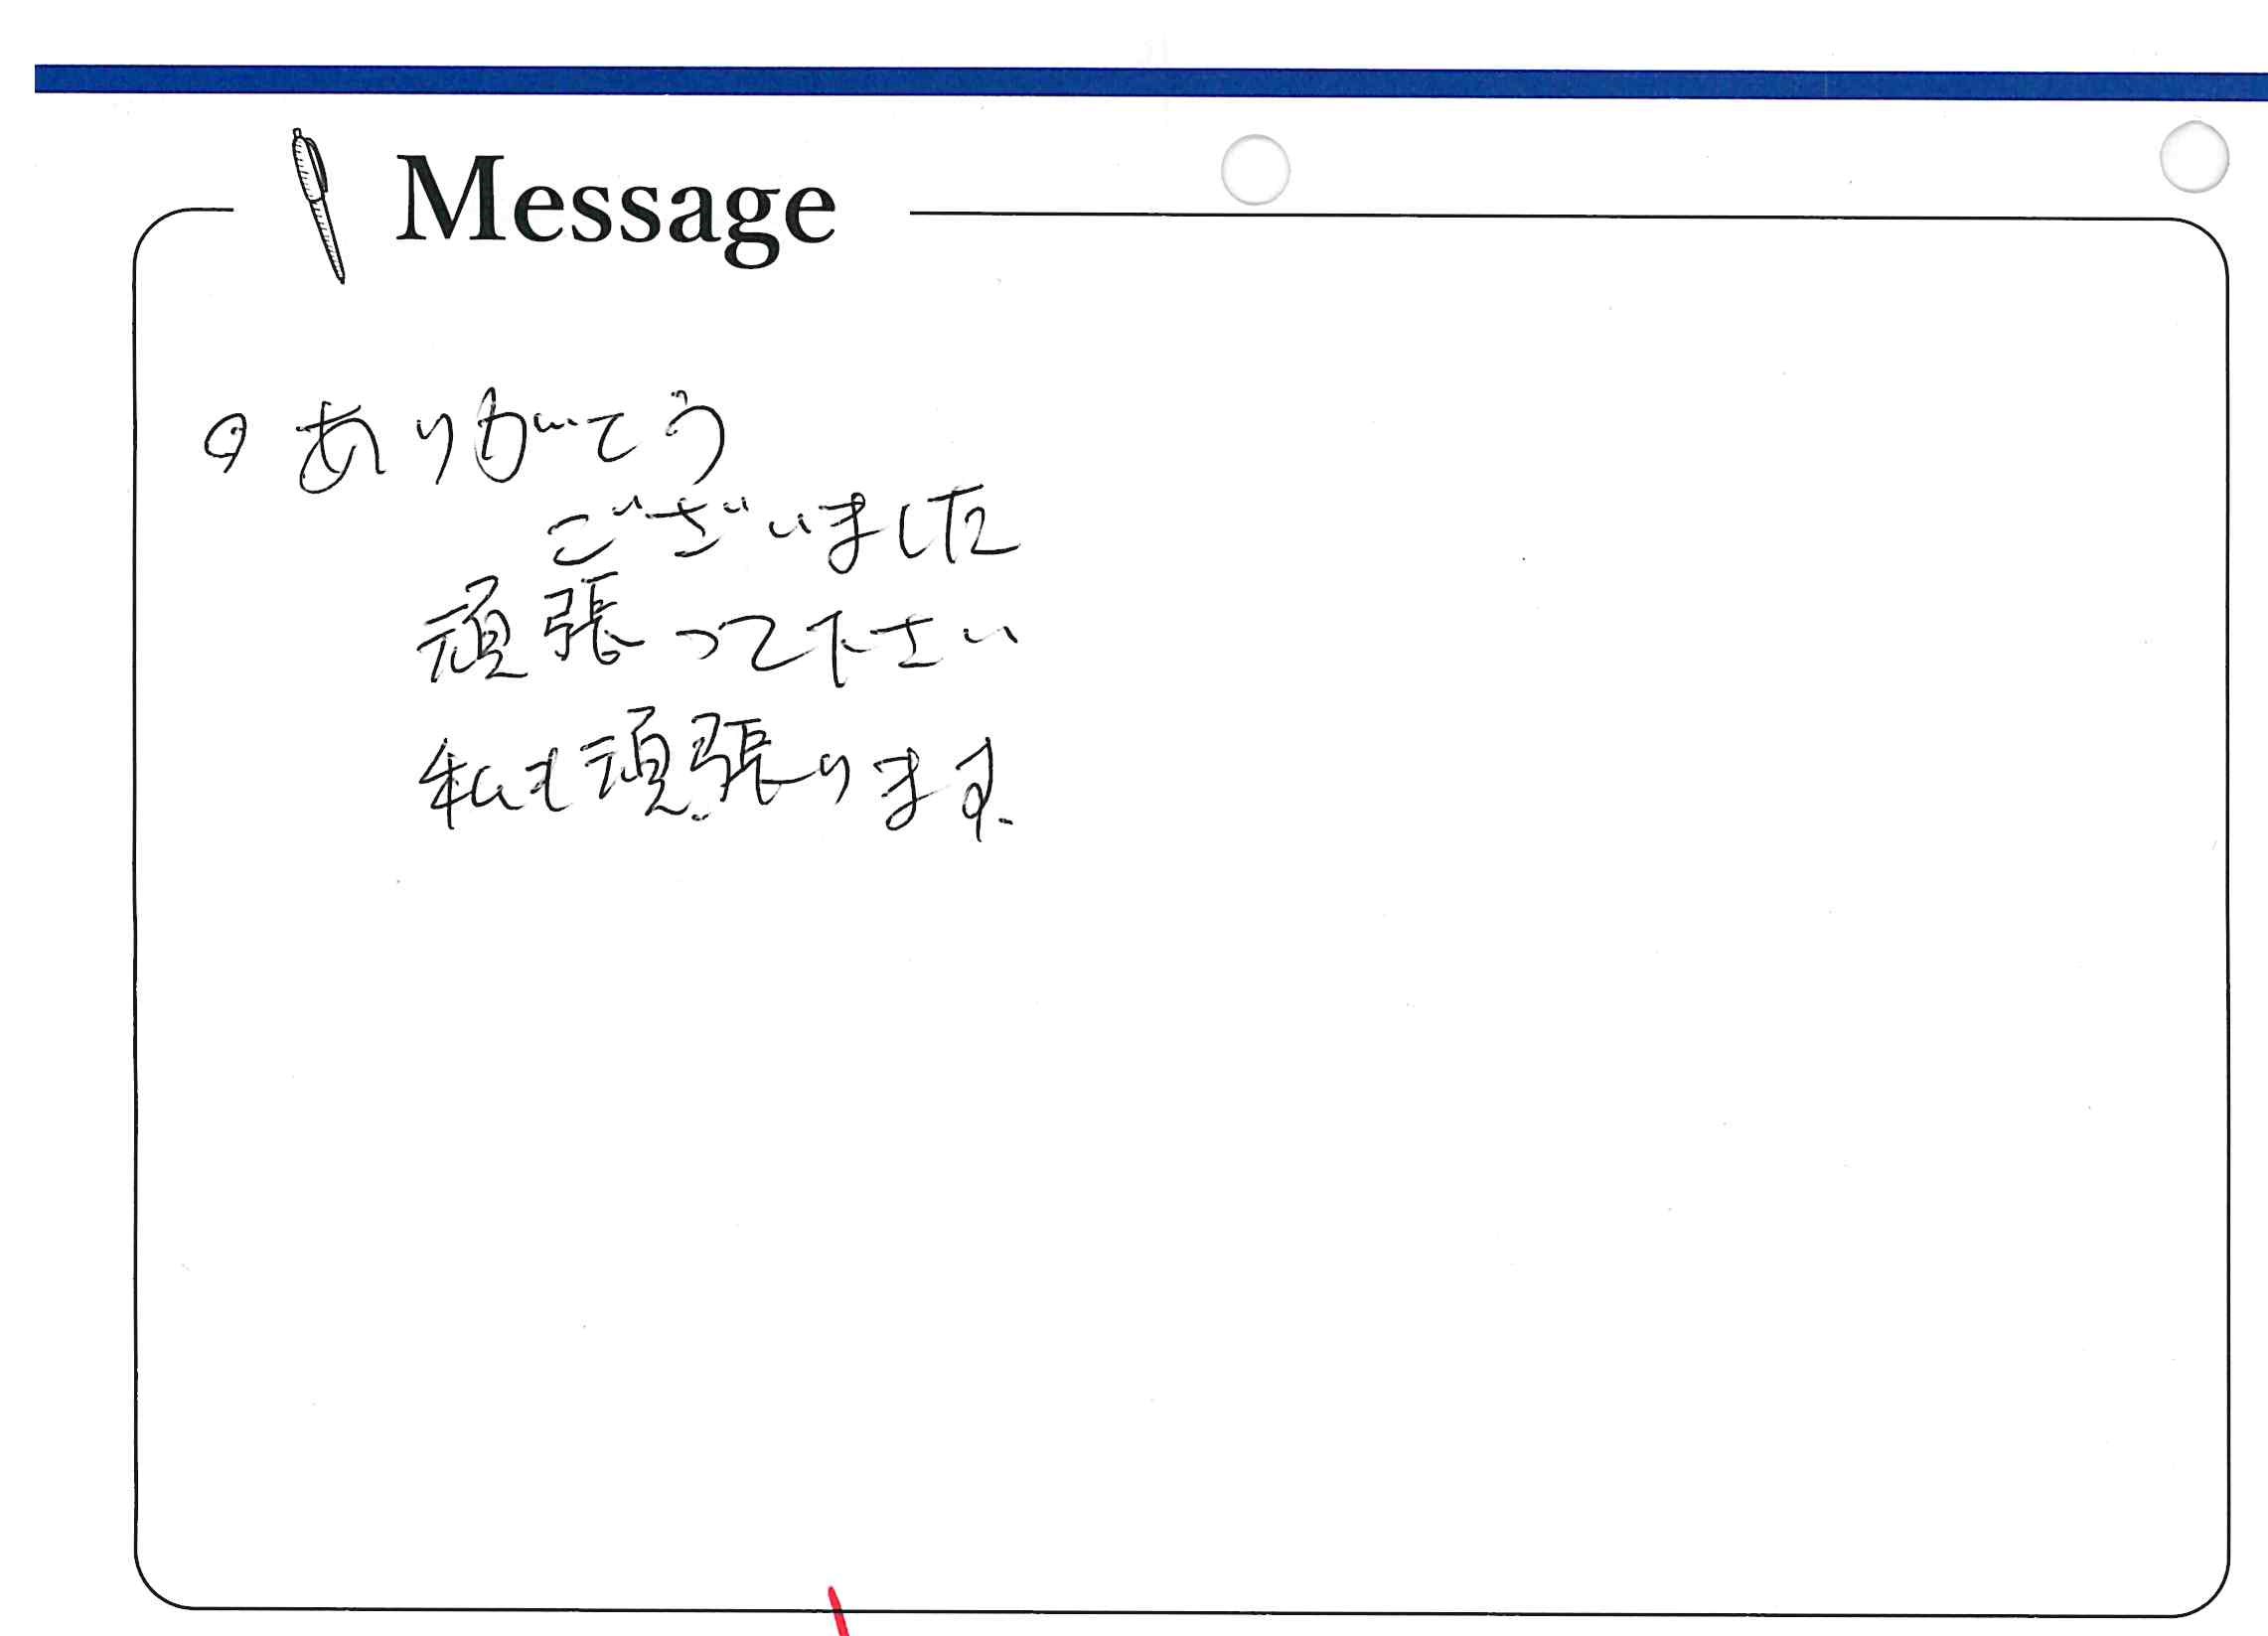 Message
ありがとう
ございました
頑張って下さい
私も頑張ります.